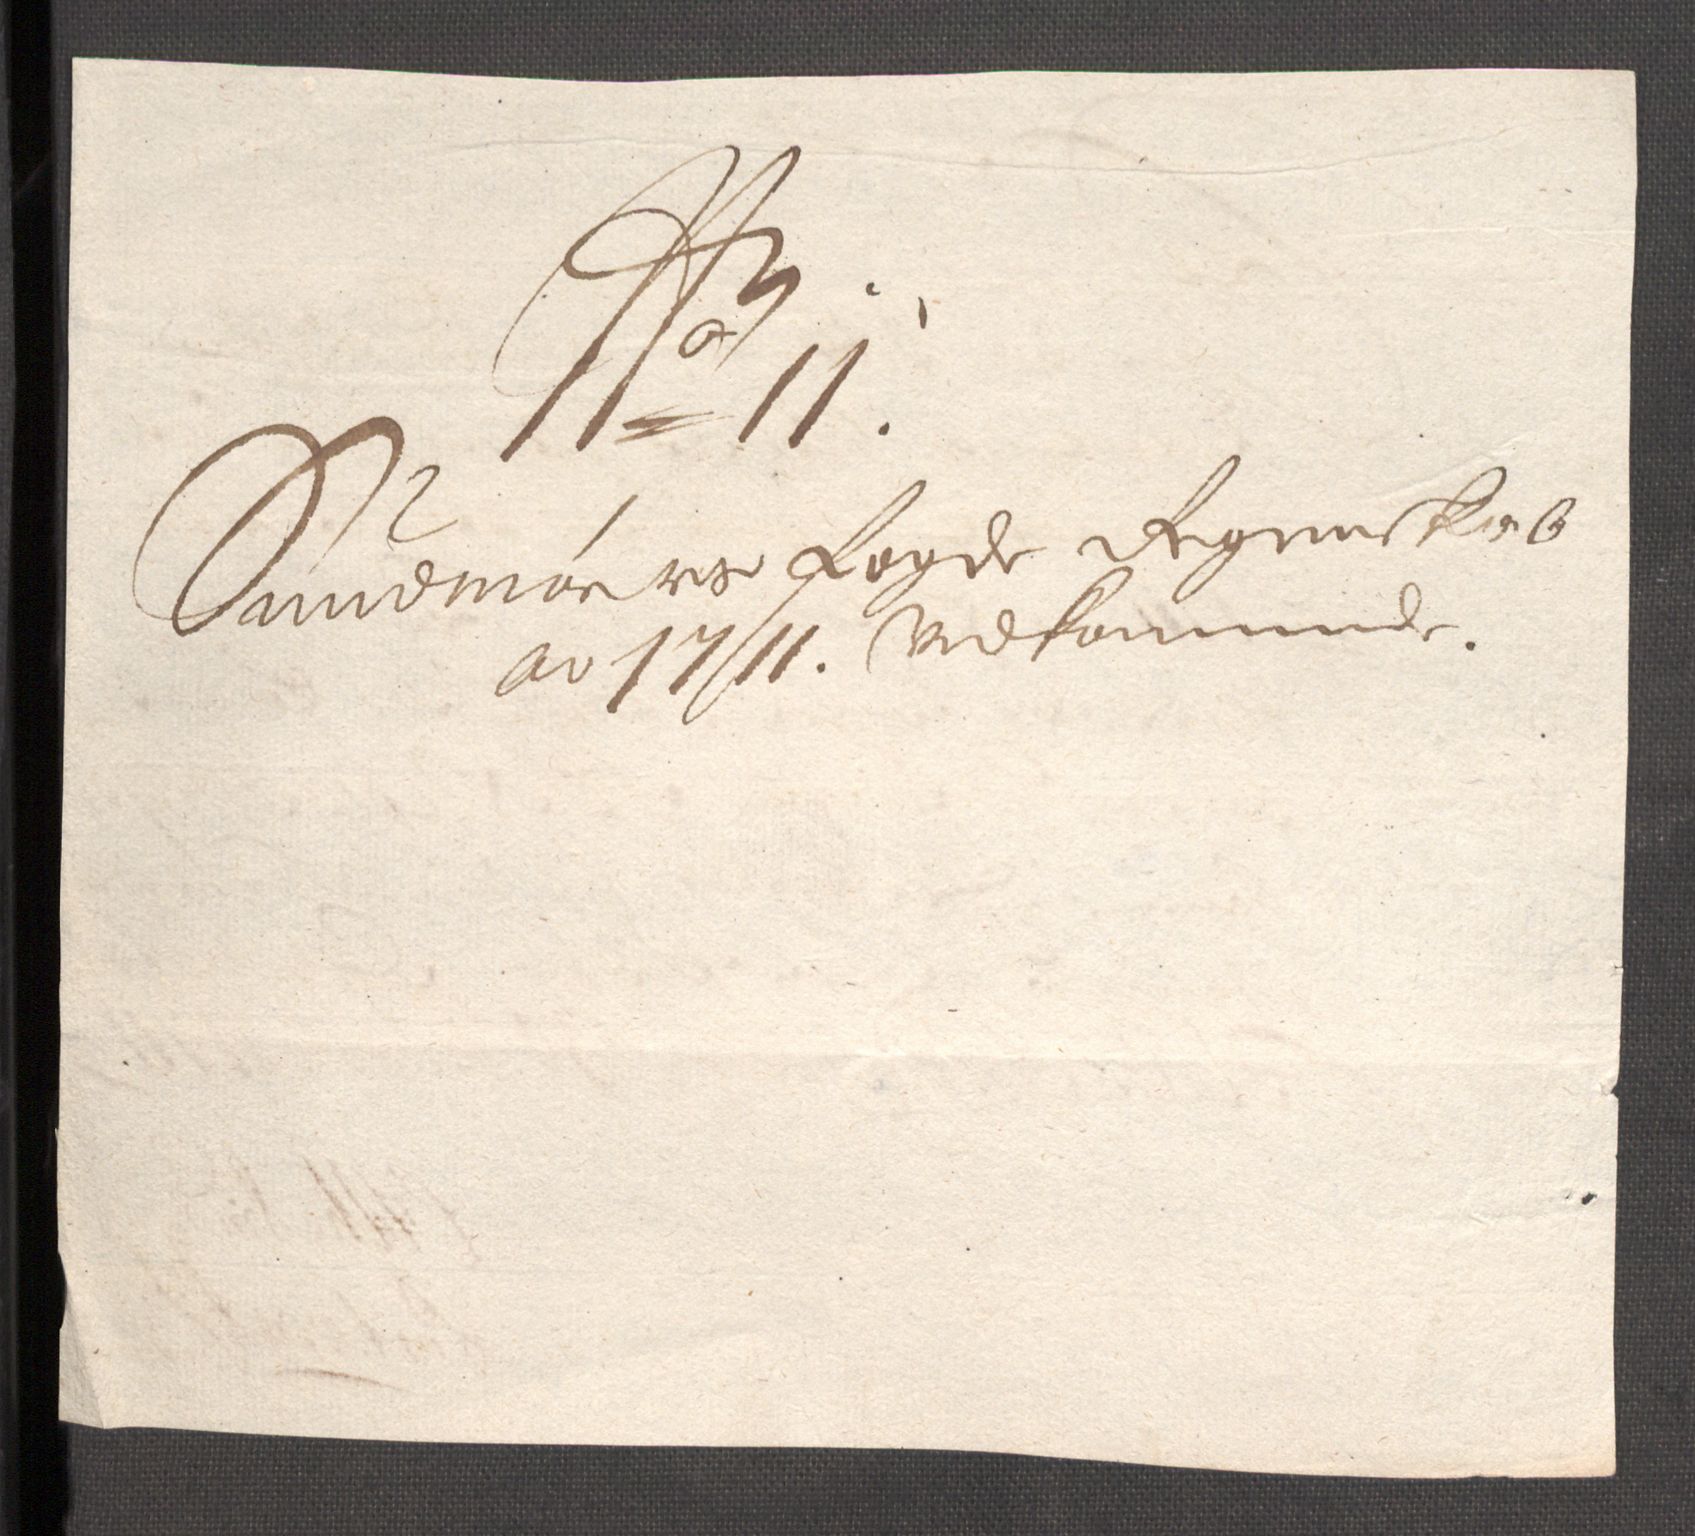 No 11.
Sundmörs Fogde Regenskab
ao 1711. Vedkommende.